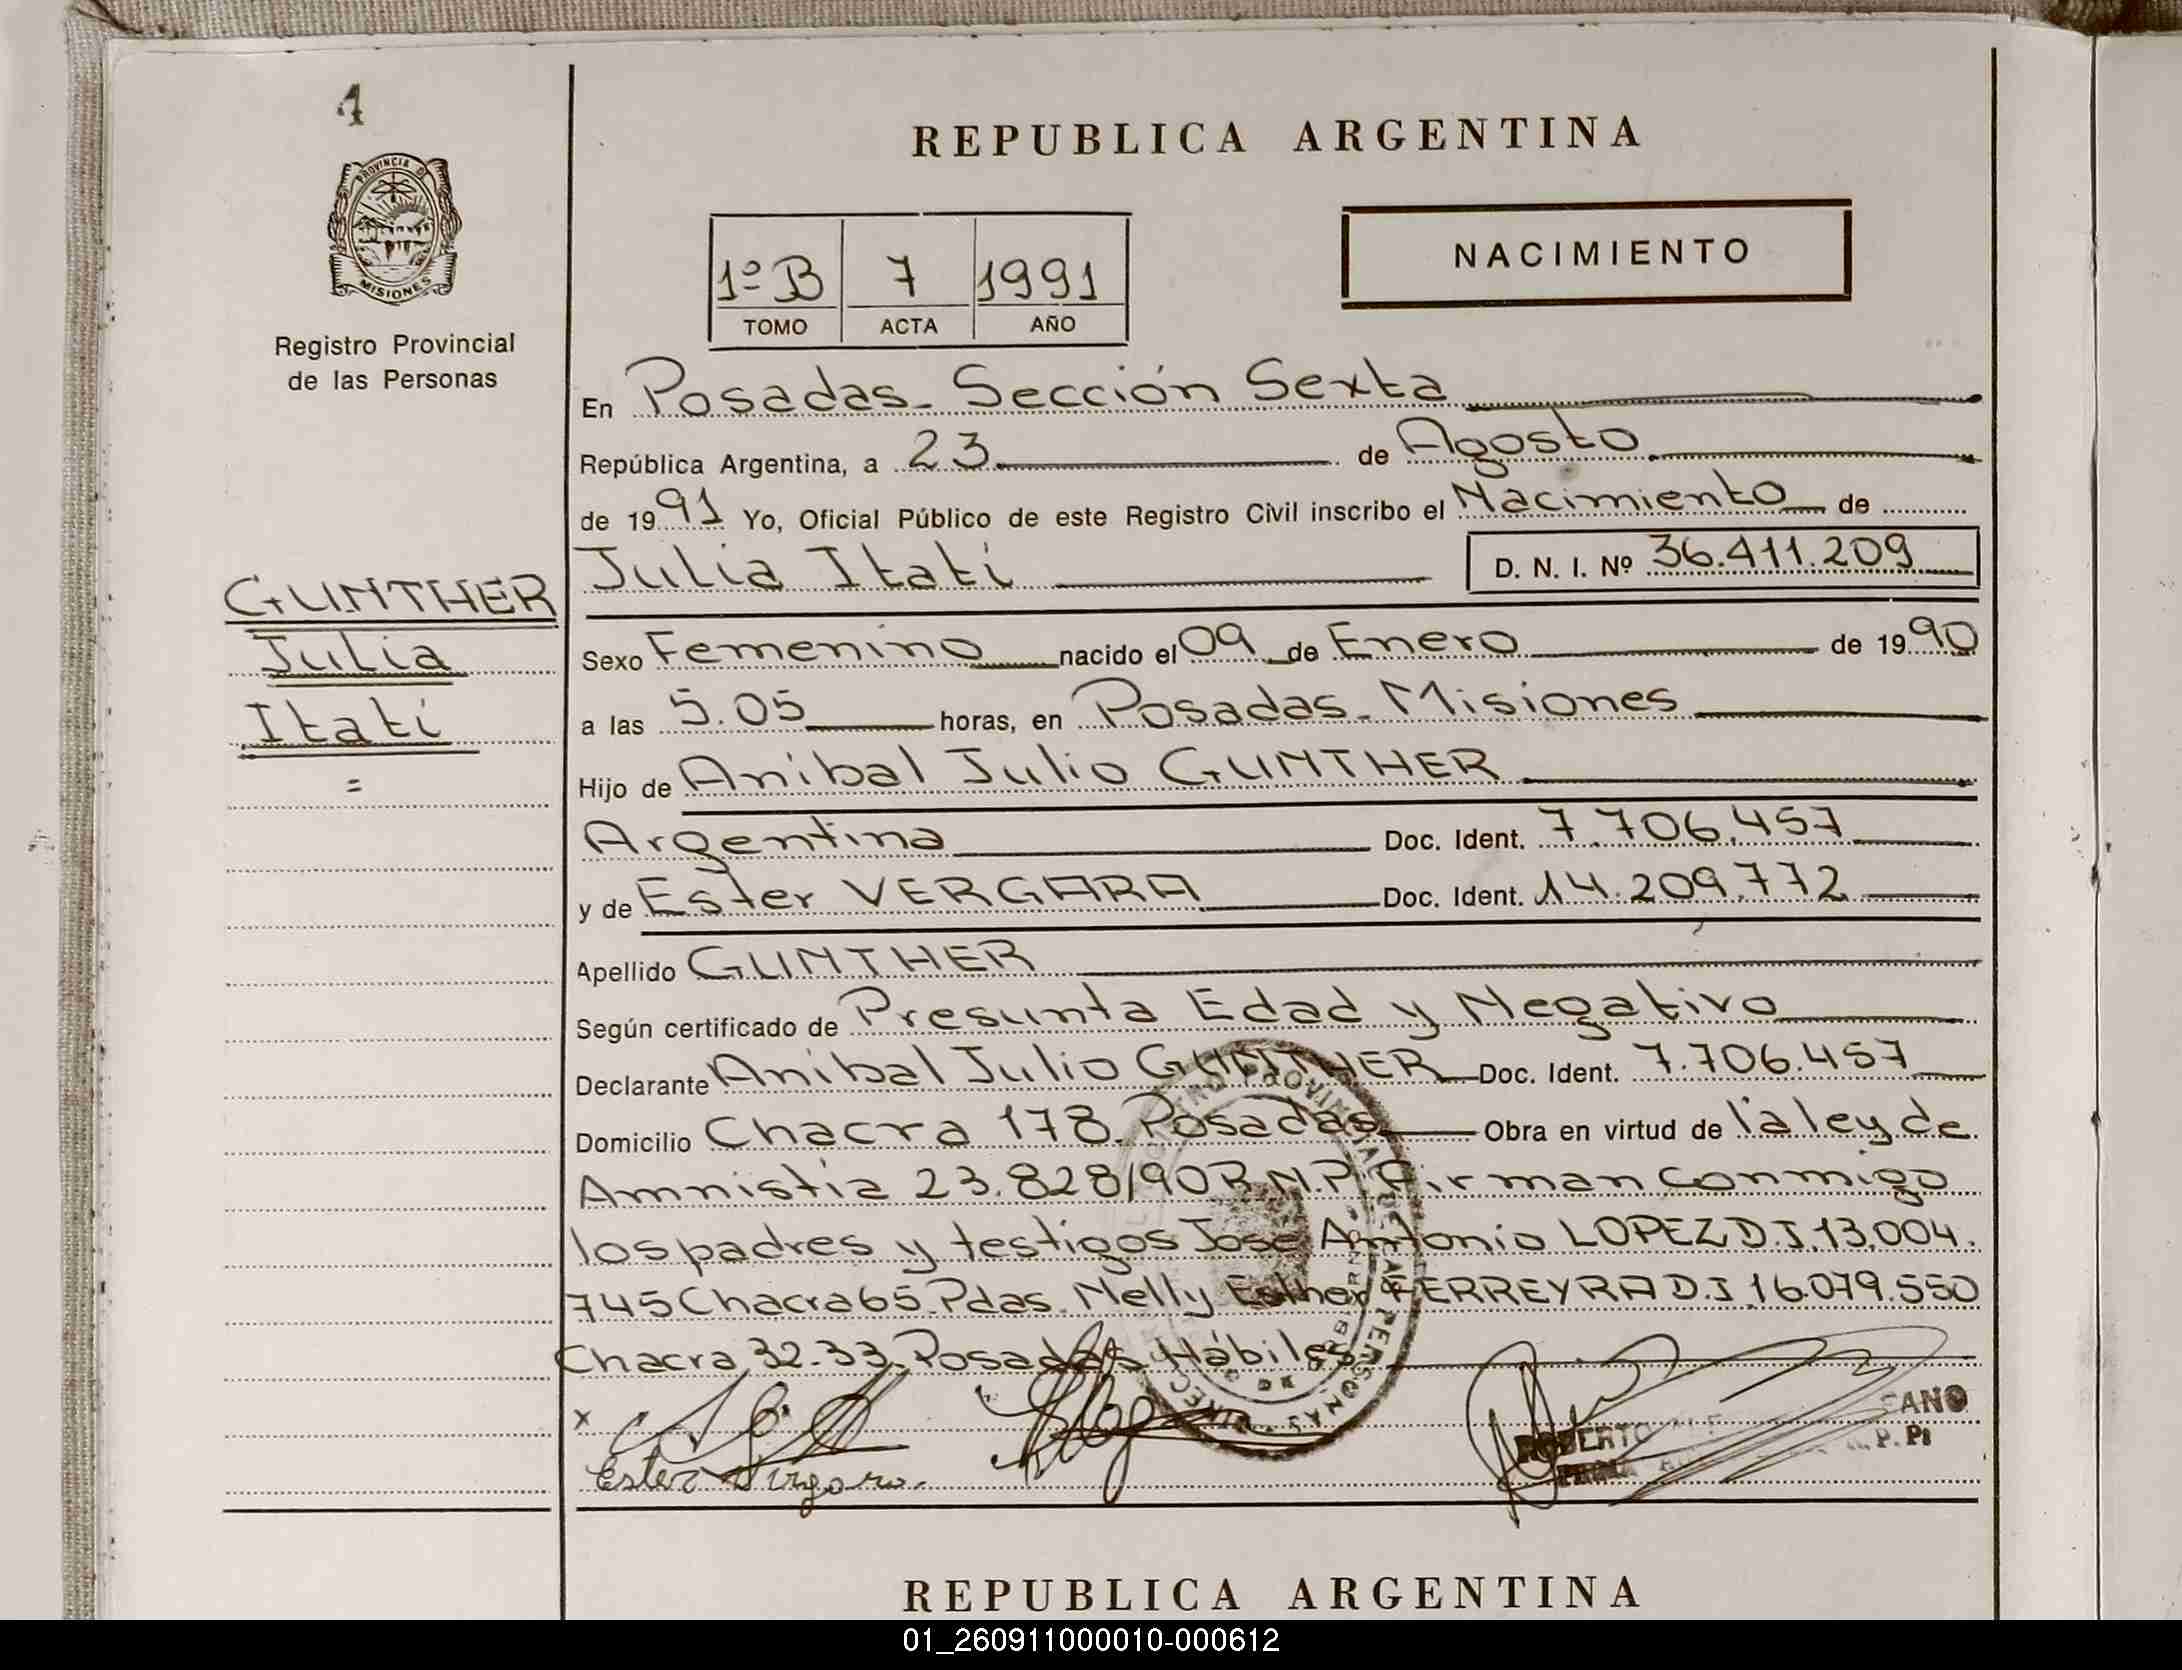 4
PROVINCIA DE
MISIONES
Registro Provincial
de las Personas
REPUBLICA ARGENTINA
1º B 7 1991
TOMO ACTA AÑO
NACIMIENTO
En Posadas - Sección Sexta
República Argentina, a 23 de Agosto
de 1991 Yo, Oficial Público de este Registro Civil inscribo el Nacimiento de
Julia Itatí D. N. I. Nº 36.411.209
GUNTHER
Julia
Itatí
=
Sexo Femenino nacido el 09 de Enero de 1990
a las 5.05 horas, en Posadas - Misiones
Hijo de Anibal Julio GUNTHER
Argentina Doc. Ident. 7.706.457
y de Ester VERGARA Doc. Ident. 14.209.772
Apellido GUNTHER
Según certificado de Presunta Edad y Negativo
Declarante Anibal Julio GUNTHER Doc. Ident. 7.706.457
Domicilio Chacra 178. Posadas Obra en virtud de la ley de
Amnistia 23.828/90 R.N.P. Firman conmigo
los padres y testigos Jose Antonio LOPEZ D.I. 13.004.
745 Chacra 65. Pdas. Nelly Esther FERREYRA D.I 16.079.550
Chacra 32-33. Posadas Hábiles
x
Ester Virgara.
ROBERTO
REPUBLICA ARGENTINA
01_260911000010-000612